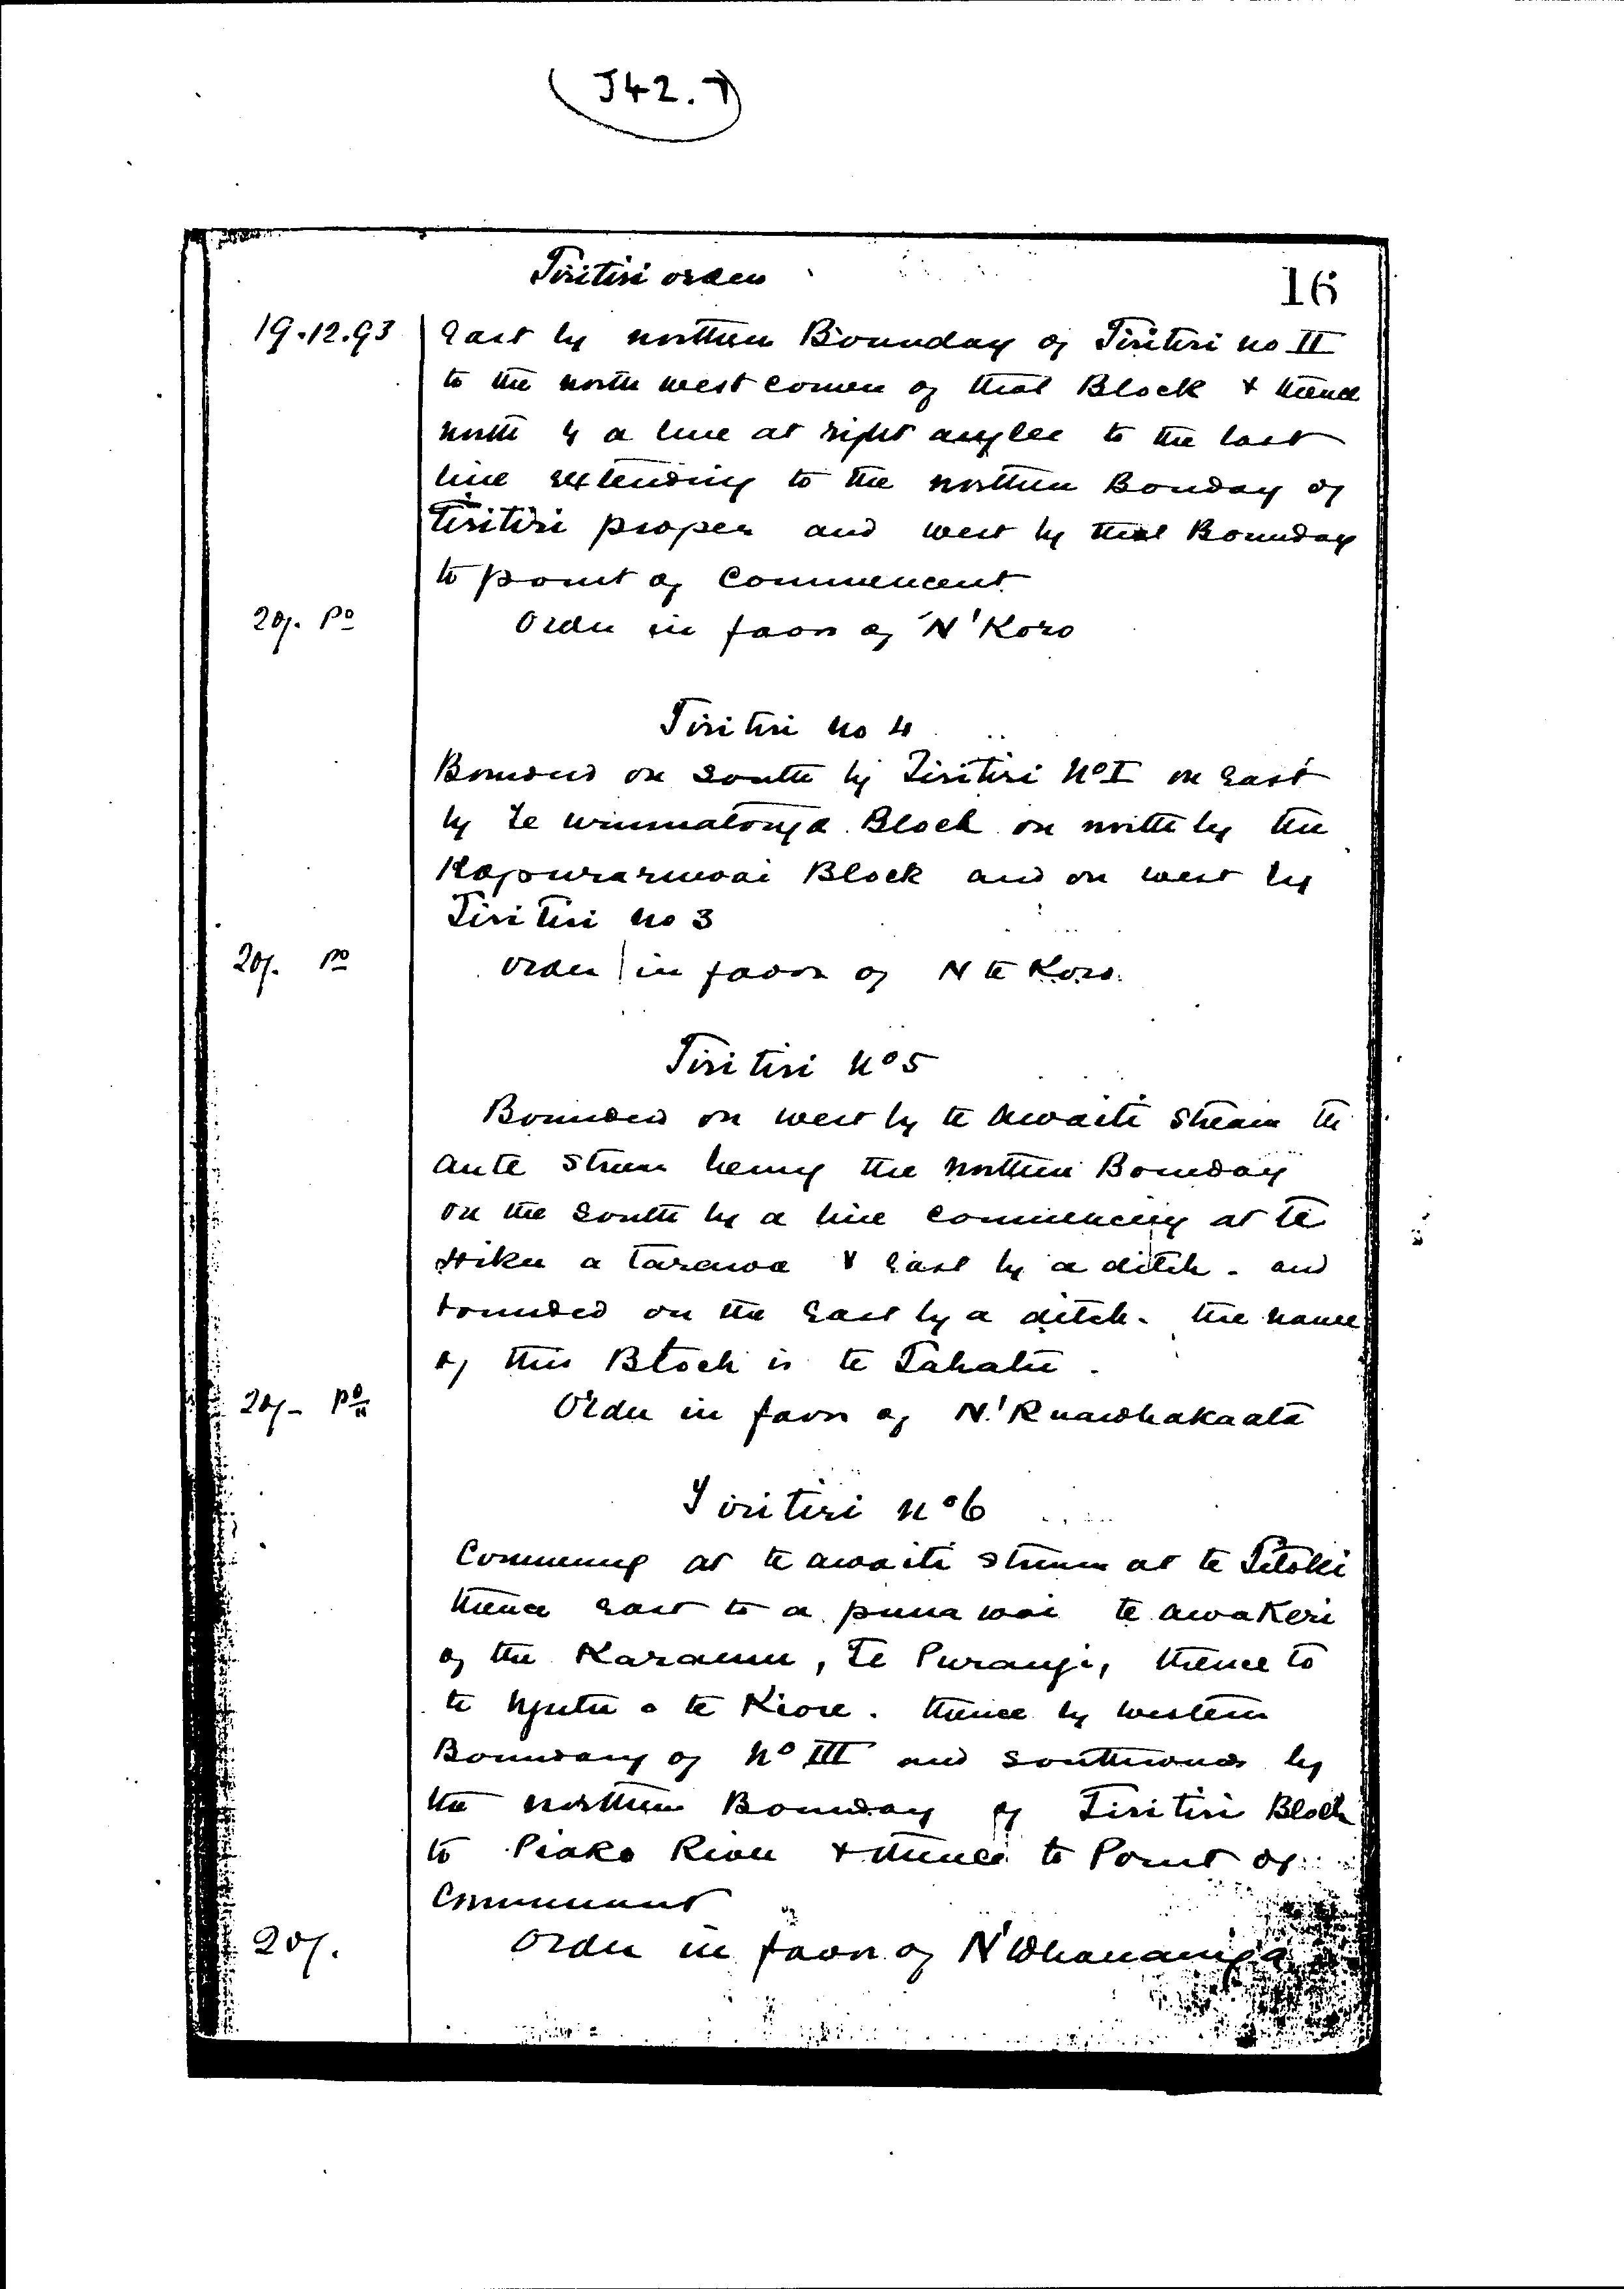 J42.7
Tiritiri orders
16
19.12.93
East by northern Boundary of Tiritiri no II
to the north west corner of that Block & thence
north by a line at right angles to the last
line extending to the northern Bonday of
Tiritiri proper and west by that Boundary
to point of Commencent
20/. Po
Order in favor of N' Koro
Tiritiri no 4
Bounded on South by Tiritiri No I on East
by Te Block on north by the
Block and on west by
Tiritiri no 3
20/. Po
Order in favor of N te Koro.
Tiritiri No 5
Bounded on west by te Awaiti Stream te
Aute Stream being the northern Boundary
on the South by a line commencing at te
Hiku a Tarewa & East by a ditch - and
bounded on the East by a ditch. the name
of this Block is te
20/- Po
Order in favor of N' Ruawhakaata
Tiritiri No 6
Commencg at te awaiti stream at te Titoki
thence East to a puna wai te awakeri
of the Karamu, Te Purangi, thence to
te Ngutu o te Kiore. thence by western
Boundary of No III and Southwards by
the northern Bounday of Tiritiri Block
to Piako River & thence to Point of
Commencement
20/.
Order in favor of N' Whanaunga